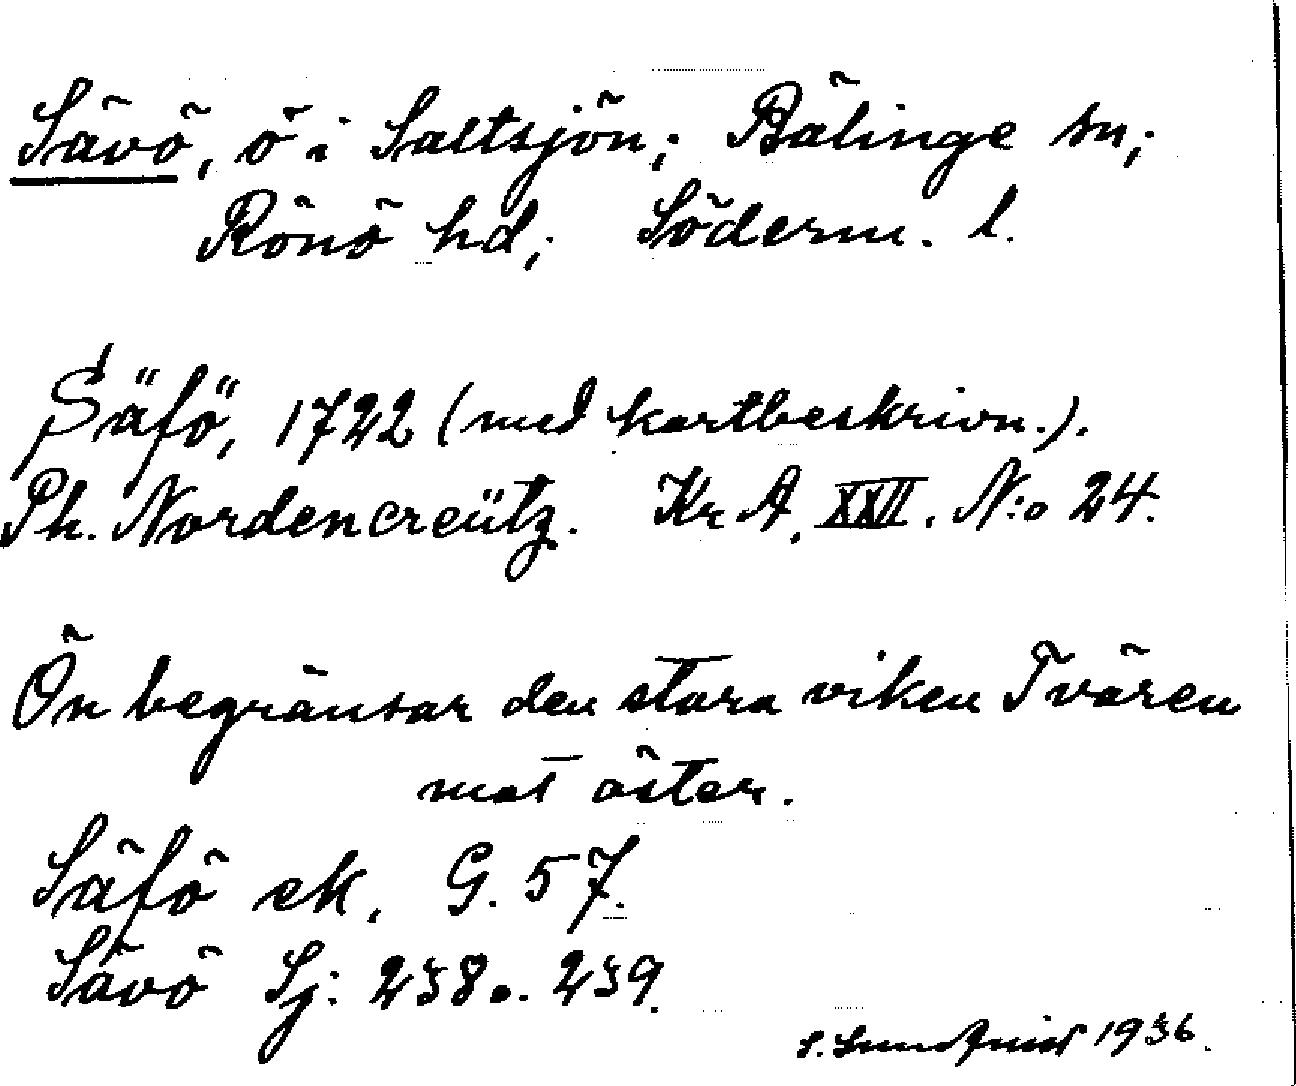 Sävö, ö i Saltsjön; Bälinge sn;
Rönö hd; Söderm. l.
Säfö, 1722 (med kartbeskrivn.).
Ph. Nordencreütz. Kr A, XXII. N:o 24.
Ön begränsar den stora viken Tvären
mot öster.
Säfö ek. G. 57.
Sävö Sj: 238 o. 239.
S. 1936.